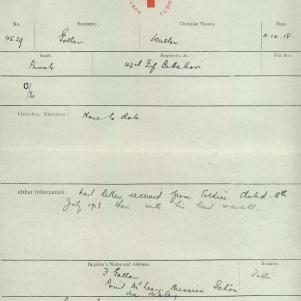 No. Surname. Christian Names. Date.
4529 Gollan Walter 11.12.18
Rank. Regiment, &c. File No.
Private 43rd Inf Battalion
OPTIONAL REPORTS: None to date
Other Information: Last letter received from Soldier dated
July 1918 then with his unit
Inquirer's Name and Address. Relation.
F Gollan
Point McLeay Mission Station
via